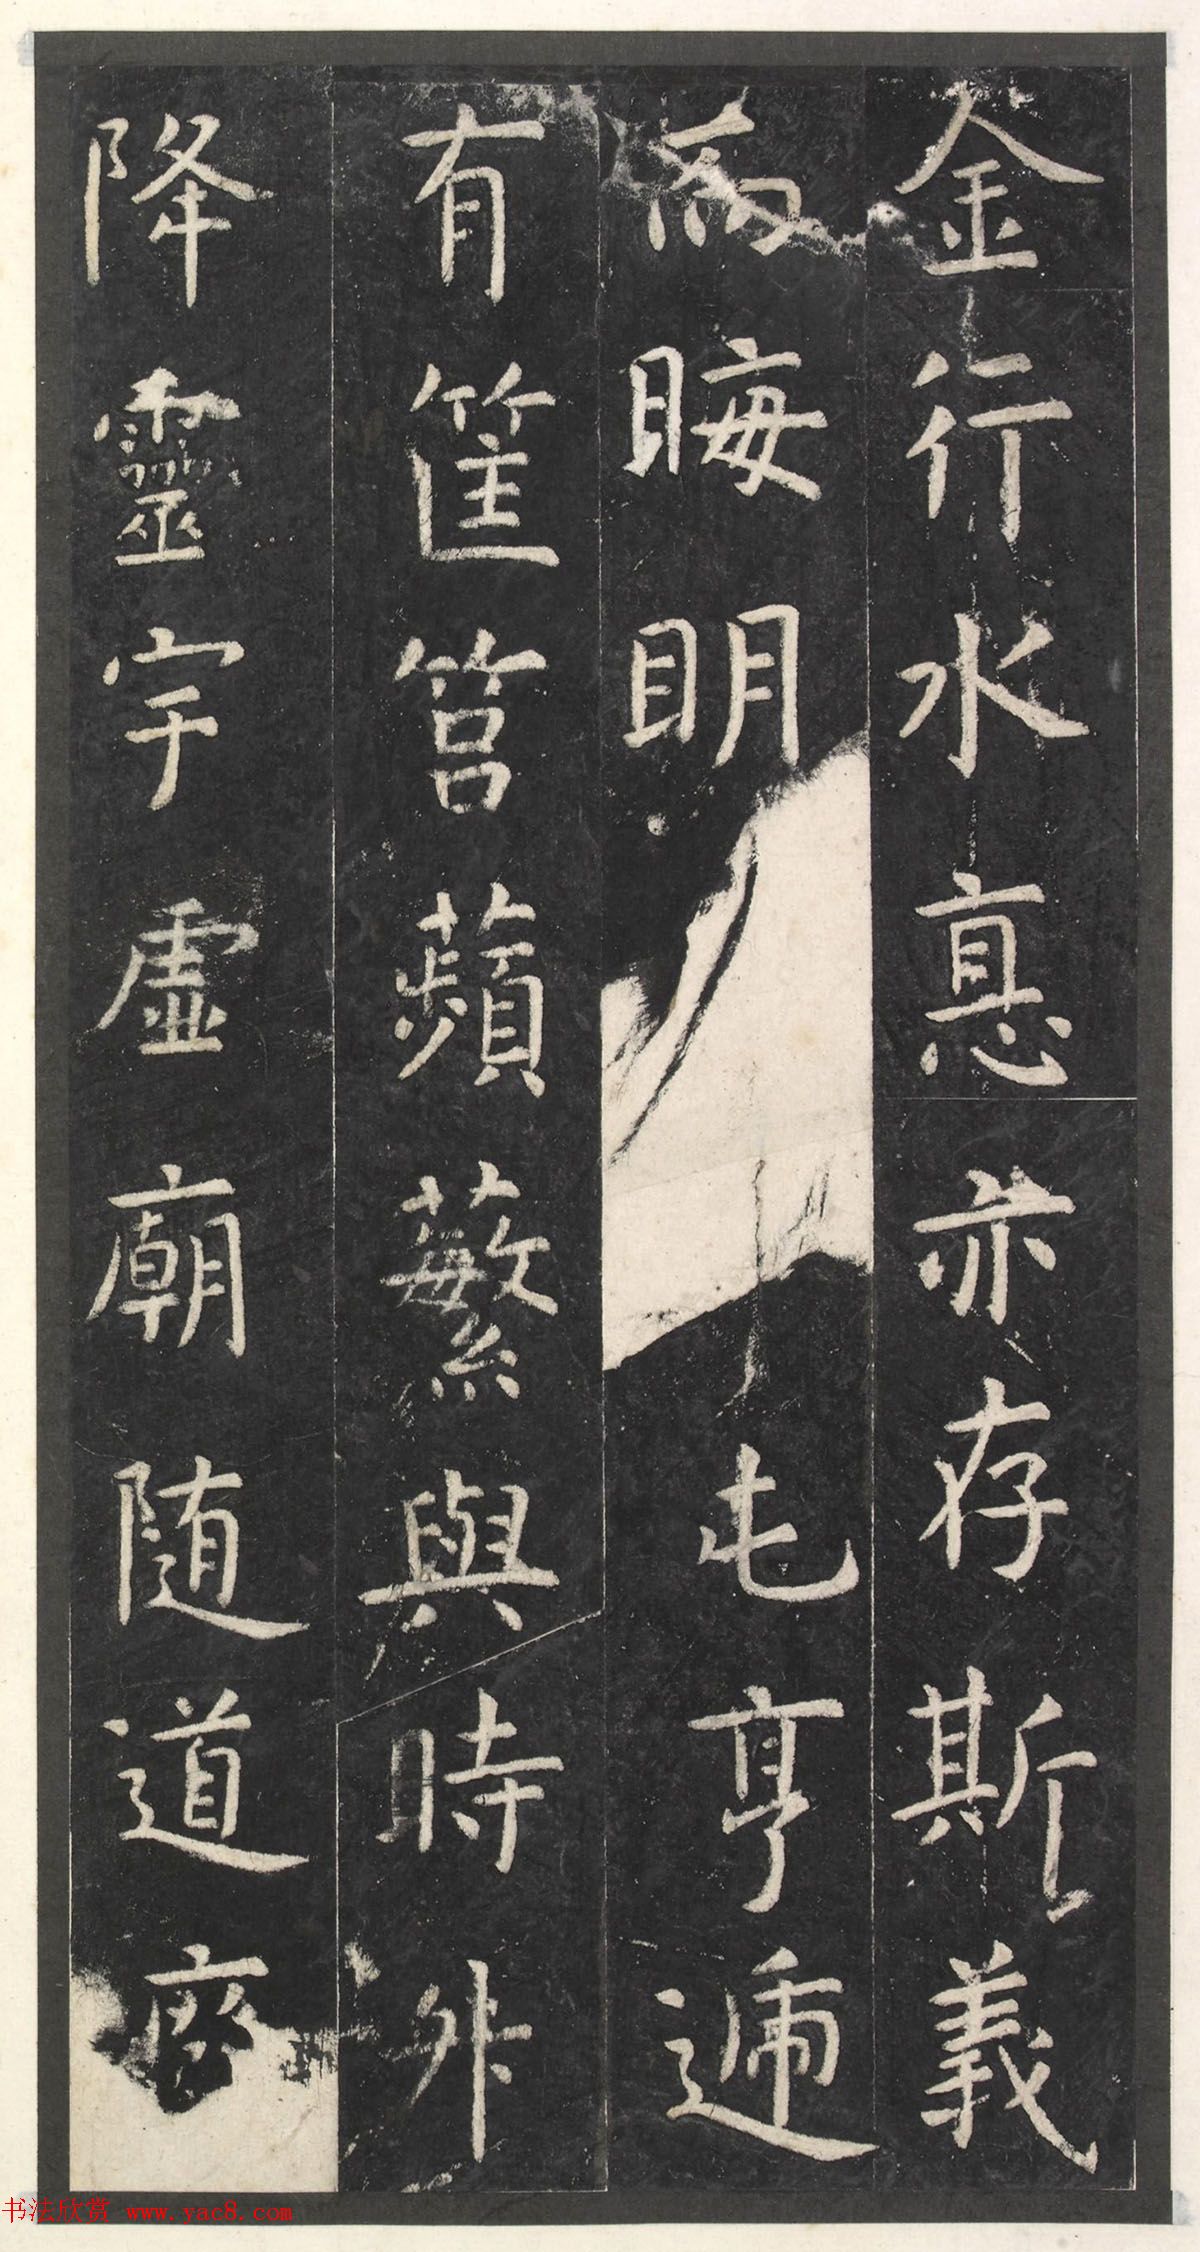 金行水悳亦存斯義
而晦明屯亨遞
有筐筥蘋蘩與時升
降靈宇虛廟隨道廢
书法欣赏 www.yac8.com